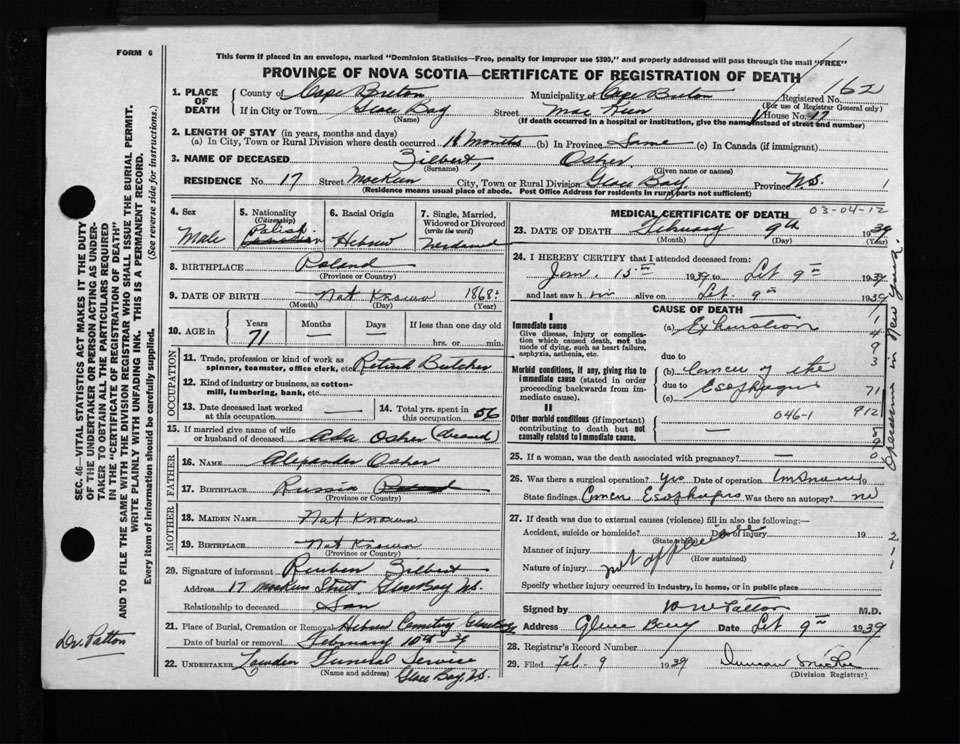 FORM 6
This form if placed in an envelope, marked "Dominion Statistics—Free, penalty for improper use $300," and properly addressed will pass through the mail "FREE"
PROVINCE OF NOVA SCOTIA—CERTIFICATE OF REGISTRATION OF DEATH
162
1. PLACE OF DEATH County of Cape Breton Municipality of Cape Breton Registered No.
(For use of Registrar General only)
If in City or Town Glace Bay Street House No. 17
(Name) (If death occurred in a hospital or institution, give the name instead of street and number)
2. LENGTH OF STAY (in years, months and days)
(a) In City, Town or Rural Division where death occurred months (b) In Province Same (c) In Canada (if immigrant)
3. NAME OF DECEASED Zilbert, Osher
(Surname) (Given name or names)
RESIDENCE No. 17 Street City, Town or Rural Division Glace Bay Province N.S. 1
(Residence means usual place of abode. Post Office Address for residents in rural parts not sufficient)
4. Sex Male
5. Nationality (Citizenship) Polish Canadian
6. Racial Origin Hebrew
7. Single, Married, Widowed or Divorced (write the word)
8. BIRTHPLACE Poland
(Province or Country)
9. DATE OF BIRTH Not Known 1868
(Month) (Day) (Year)
10. AGE in Years 71 Months — Days — If less than one day old
hrs. or min.
OCCUPATION
11. Trade, profession or kind of work as spinner, teamster, office clerk, etc. Retired Butcher
12. Kind of industry or business, as cotton-mill, lumbering, bank, etc.
13. Date deceased last worked at this occupation —
14. Total yrs. spent in this occupation 50
15. If married give name of wife or husband of deceased Ada Osher (deceased)
FATHER
16. NAME Alexander Osher
17. BIRTHPLACE Russia Poland
(Province or Country)
MOTHER
18. MAIDEN NAME Not Known
19. BIRTHPLACE Not Known
(Province or Country)
20. Signature of informant Reuben Zilbert
Address 17 Street, Glace Bay N.S.
Relationship to deceased Son
21. Place of Burial, Cremation or Removal Hebrew Cemetery Glace Bay
Date of burial or removal February 10th - 39
22. UNDERTAKER Funeral Service
(Name and address) Glace Bay, N.S.
MEDICAL CERTIFICATE OF DEATH 03-04-12
23. DATE OF DEATH February 9th 1939
(Month) (Day) (Year)
24. I HEREBY CERTIFY that I attended deceased from:
Jan. 15th 1939 to Feb 9th 1939
and last saw him alive on Feb. 9th 1939
CAUSE OF DEATH
I
Immediate cause (a) Exhaustion
Give disease, injury or complication which caused death, not the mode of dying, such as heart failure, asphyxia, asthenia, etc.
due to
Morbid conditions, if any, giving rise to immediate cause (stated in order proceeding backwards from immediate cause).
(b) Cancer of the
due to
(c) Esophagus
II
Other morbid conditions (if important) contributing to death but not causally related to immediate cause.
046-1
—
1
4
9
3
71
912
25. If a woman, was the death associated with pregnancy? —
26. Was there a surgical operation? Yes Date of operation
State findings Cancer Esophagus Was there an autopsy? no
27. If death was due to external causes (violence) fill in also the following:—
Accident, suicide or homicide? Date of injury 19
(State which)
Manner of injury
(How sustained)
Nature of injury not applicable
2
1
1
Specify whether injury occurred in industry, in home, or in public place
Signed by W W Patton M.D.
Address Glace Bay Date Feb 9th 1939
28. Registrar's Record Number
29. Filed Feb - 9 1939 Duncan
(Division Registrar)
Operation in New York
SEC. 46—VITAL STATISTICS ACT MAKES IT THE DUTY
OF THE UNDERTAKER OR PERSON ACTING AS UNDER-
TAKER TO OBTAIN ALL THE PARTICULARS REQUIRED
IN THE "CERTIFICATE OF REGISTRATION OF DEATH"
AND TO FILE THE SAME WITH THE DIVISION REGISTRAR WHO SHALL ISSUE THE BURIAL PERMIT.
WRITE PLAINLY WITH UNFADING INK. THIS IS A PERMANENT RECORD.
Every item of information should be carefully supplied. (See reverse side for instructions.)
Dr. Patton